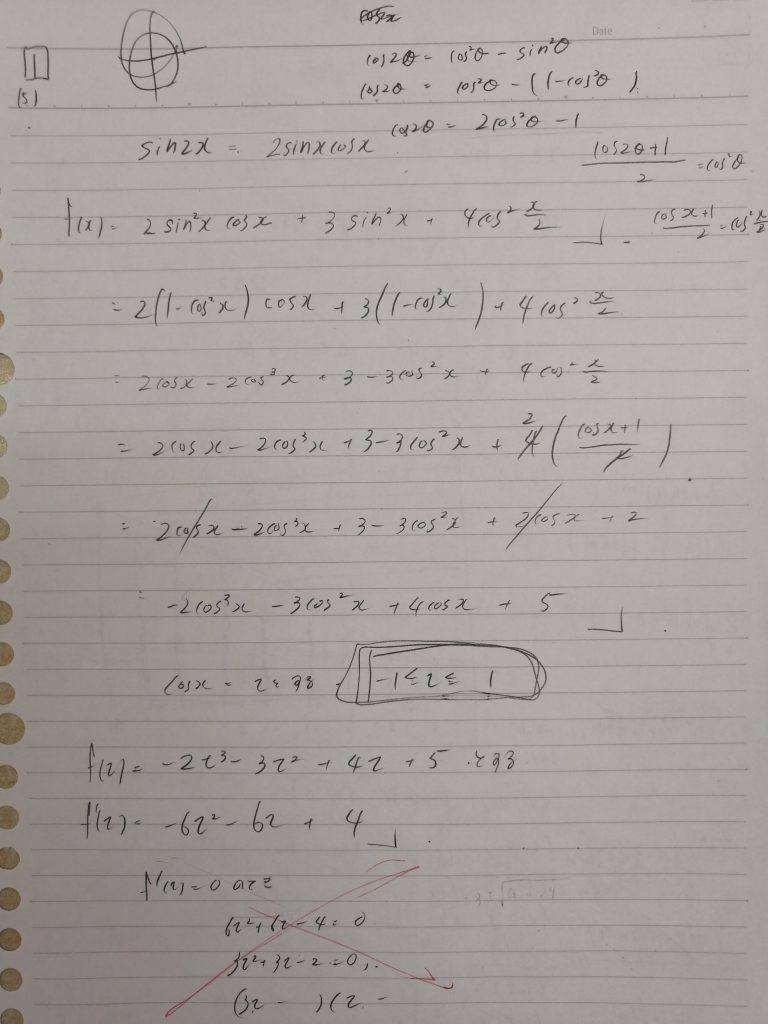 Date
1
(5)
cos2θ = cos²θ - sin²θ
cos2θ = cos²θ - (1-cos²θ)
cos2θ = 2cos²θ - 1
sin2x = 2sinxcosx
(cos2θ+1)/2 = cos²θ
f(x) = 2sin²x cosx + 3sin²x + 4cos² x/2
(cosx+1)/2 = cos² x/2
= 2(1-cos²x) cosx + 3(1-cos²x) + 4cos² x/2
= 2cosx - 2cos³x + 3 - 3cos²x + 4cos² x/2
= 2cosx - 2cos³x + 3 - 3cos²x + 4((cosx+1)/2)
= 2cosx - 2cos³x + 3 - 3cos²x + 2cosx + 2
= -2cos³x - 3cos²x + 4cosx + 5
cosx = t とおく -1 ≦ t ≦ 1
f(t) = -2t³ - 3t² + 4t + 5 とおく
f'(t) = -6t² - 6t + 4
f'(t) = 0 のとき
6t² + 6t - 4 = 0
3t² + 3t - 2 = 0
(3t - )(t -